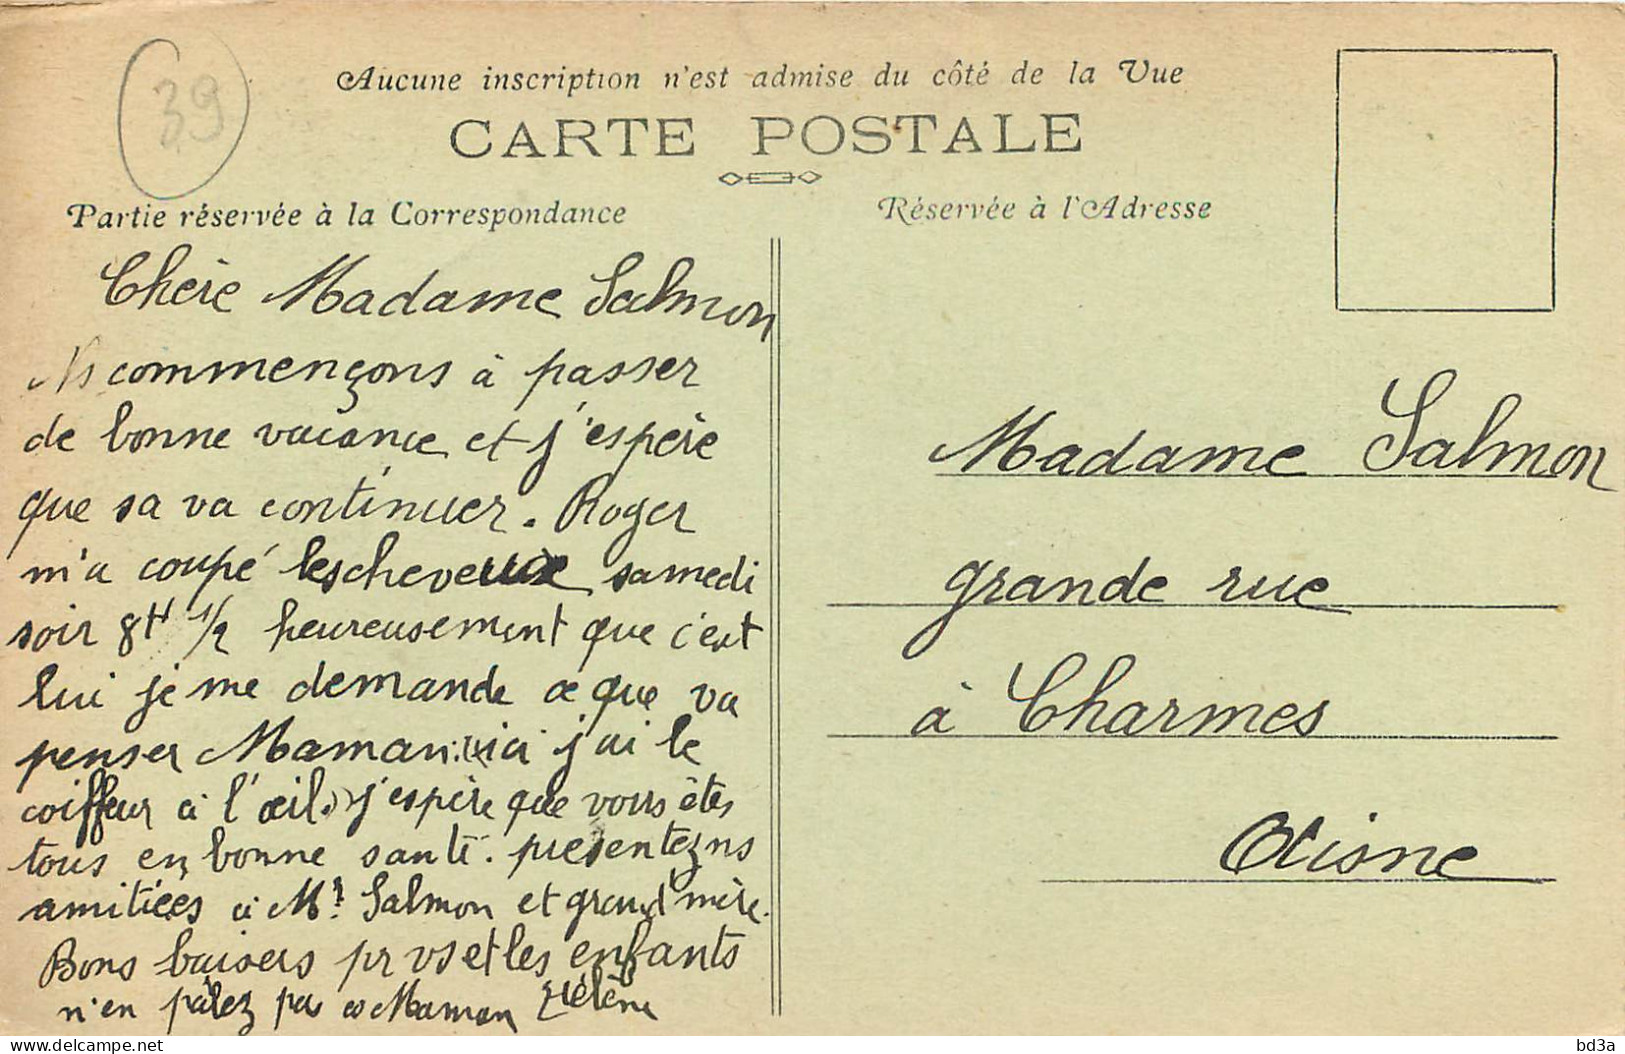 39
Aucune inscription n'est admise du côté de la Vue
CARTE POSTALE
Partie réservée à la Correspondance
Réservée à l'Adresse
Chère Madame Salmon
Ns commençons à passer
de bonne vacance et j'espère
que sa va continuer. Roger
m'a coupé les cheveux samedi
soir 8H 1/2 heureusement que c'est
lui je me demande ce que va
penser Maman ici j'ai le
coiffeur à l'œil. j'espère que vous êtes
tous en bonne santé. présentez ns
amitiées à Mr Salmon et grand'mère.
Bons baisers pr vs et les enfants
n'en pàlez pas à Maman Hélène
Madame Salmon
grande rue
à Charmes
Aisne
delcampe.net
bd3a